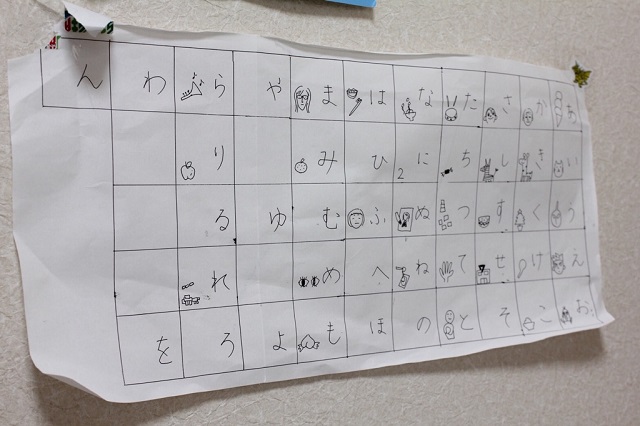 あいうえお
かきくけこ
さしすせそ
たちつてと
なにぬねの
2
はひふへほ
まみむめも
やゆよ
らりるれろ
わを
ん